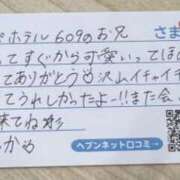 さま
ホテル609のお兄
ってすぐから可愛いってほ
てありがとう♡沢山イチャイチ
ってうれしかったよー!!また会
来てね
かめ
ヘブンネット口コミ→